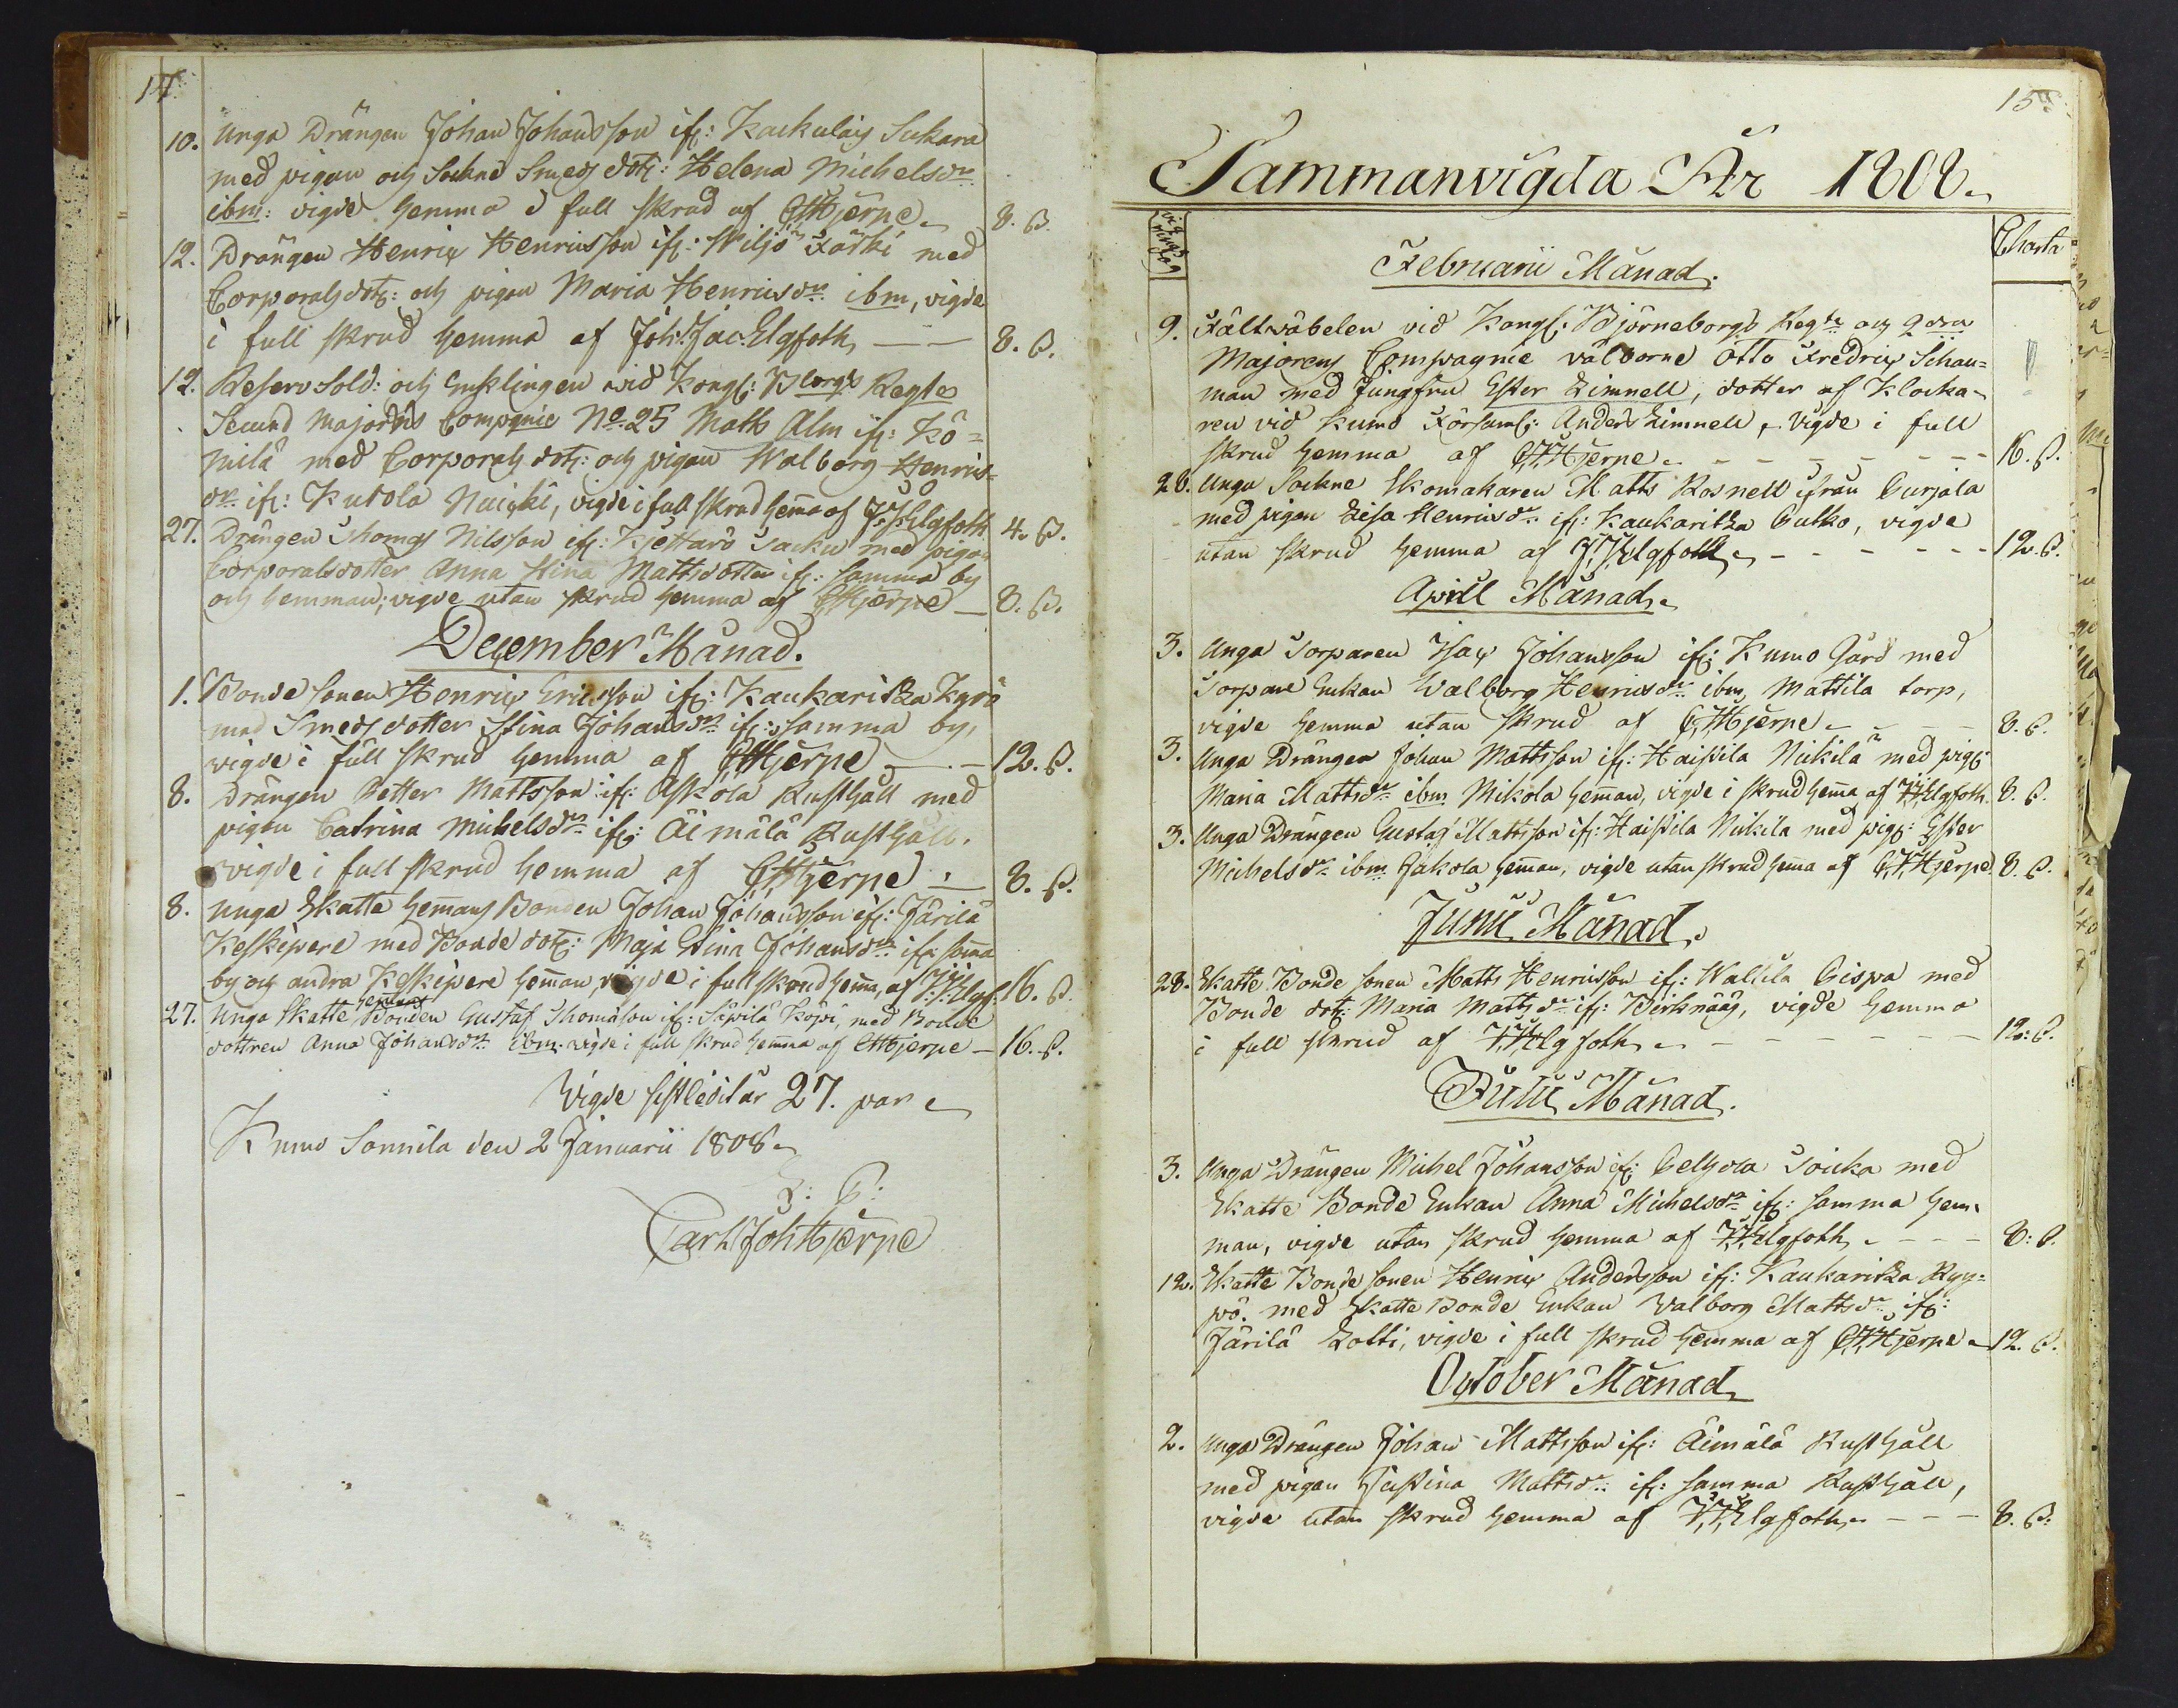 14.
10. Unga Drängen Johan Johansson ifr: Kackulais Sukara
med pigan och Sockne Smeds dotr: Helena Michelsdr
ibm: vigde hemma i full skrud af CJHjerpe 8. ß.
12. Drängen Henric Henricsson ifr: Wiljo Färki med
Corporals dotr: och pigan Maria Henricsdr ibm, vigde
i full skrud hemma af Joh: Jac: Elgfoth — — 8. ß.
12. Reserv Sold: och Enklingen vid Kongl: Bborgs Regte
Secund Majorens Compgnie No. 25 Matts Alm ifr: Kö=
nilä med Corporals dotr: och pigan Walborg Henrics=
dr ifr: Kutola Naicki, vigde i full skrud hema af J:J:Elgfoth 4. ß.
27. Drängen Thomas Nilsson ifr: Kjettarö Jacku med pigan
Corporalsdotter Anna Stina Mattsdotter ifr: samma by
och hemman; vigde utan skrud hemma af CJHjerpe — 8. ß.
December Månad.
1. Bonde sonen Henric Ericsson ifr: Kaukaritza Kyrö
med Smeds dotter Stina Johansdr ifr: samma by,
vigde i full skrud hemma af CJHjerpe — . — 12. ß.
8. Drängen Petter Mattsson ifr: Askola Rusthåll med
pigan Catrina Michelsdr ifr: Äimälä Rusthåll.
vigde i full skrud hemma af CJHjerpe — 8. ß.
8. Unga Skatte hemans Bonden Johan Johansson ifr: Järilä
Keskipere med Bonde dotr: Maja Stina Johansdr ifr: sama
by och andra Keskipere heman, vigde i full skrud hema, af J:J:Elgf. 16. ß.
hemans
27. Unga Skatte Bonden Gustaf Thomasson ifr: Säpilä Köpi, med Bonde
dottren Anna Johansdr ibm. vigde i full skrud hemma af CJHjerpe — 16. ß.
Vigde sistledit år 27. par
Kumo Sonnila den 2 Januarii 1808
Carl Joh Hjerpe
15.
Sammanvigda År 1808.
Vigningsdag
Charta
Februarii Månad.
9. Fältväbelen vid Kongl: Björneborgs Regte och 2dra
Majorens Compagnie välborne Otto Fredric Schau=
man med Jungfru Ester Limnell, dotter af Klocka=
ren vid Kumo Församl: Anders Limnell, vigde i full
skrud hemma af C.J.Hjerpe — — — — 16. ß.
28. Unga Sockne Skomakaren Matts Rosnell ifrån Curjala
med pigan Lisa Henricsdr ifr: Kaukaritza Cutko, vigde
utan skrud hemma af J.J.Elgfoth — — — — 12. ß.
Aprill Månad.
3. Unga Torparen Isac Johansson ifr: Kumo Gård med
Torpare Enkan Walborg Henricsdr ibm, Mattila torp,
vigde hemma utan skrud af C.J.Hjerpe — — — 8. ß.
3. Unga Drängen Johan Mattsson ifr: Haistila Nickilä med pig:
Maria Mattsdr ibm Mikola heman, vigde i skrud hema af J.J.Elgfoth. 8. ß.
3. Unga Drängen Gustaf Mattsson ifr: Haistila Nickila med pig: Ester
Michelsdr ibm Jakola heman, vigde utan skrud hema af C.J.Hjerpe. 8. ß.
Junii Månad.
28. Skatte Bonde sonen Matts Henricsson ifr: Wallila Cispa med
Bonde dotr: Maria Mattsdr ifr: Berknäs, vigde hemma
i full skrud af J.J.Elgfoth — — — — — 12: ß.
Julii Månad.
3. Unga Drängen Michel Johansson ifr: Pelhola Toicka med
Skatte Bonde Enkan Anna Michelsdr ifr: samma hem=
man, vigde utan skrud hemma af J.J.Elgfoth — — — 8: ß.
12. Skatte Bonde sonen Henric Andersson ifr: Kaukaritza Ryy=
pö. med Skatte Bonde Enkan Walborg Mattsdr ifr:
Järilä Lotti, vigde i full skrud hemma af C.J.Hjerpe — 12. ß.
October Månad
2. Unga Drängen Johan Mattsson ifr: Äimälä Rusthåll
med pigan Justina Mattsdr ifr: samma Rusthåll,
vigde utan skrud hemma af J.J.Elgfoth — — — 8. ß.